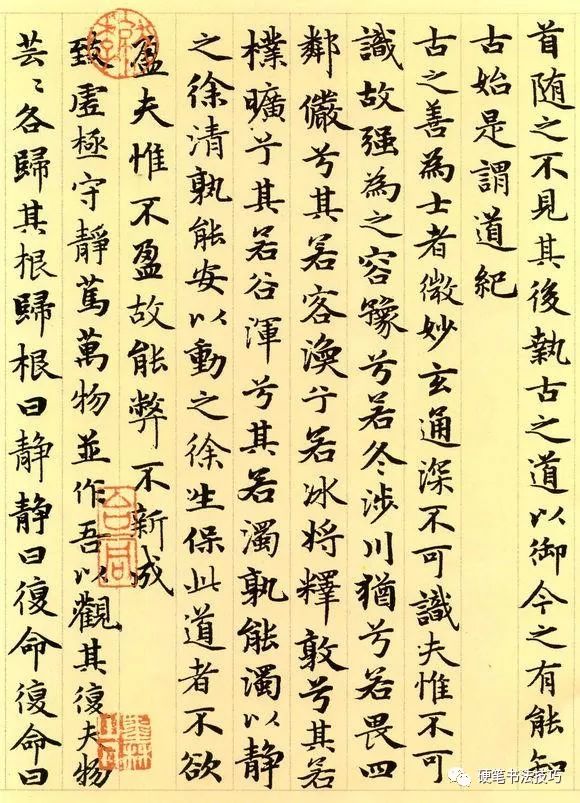 首随之不見其後執古之道以御今之有能知
古始是謂道紀
古之善為士者微妙玄通深不可識夫惟不可
識故强為之容豫兮若冬涉川猶兮若畏四
鄰儼兮其若客渙兮若冰将釋敦兮其若
樸曠兮其若谷渾兮其若濁孰能濁以静
之徐清孰能安以動之徐生保此道者不欲
盈夫惟不盈故能弊不新成
致虚極守静篤萬物並作吾以觀其復夫物
芸〻各歸其根歸根曰静静曰復命復命曰
硬笔书法技巧